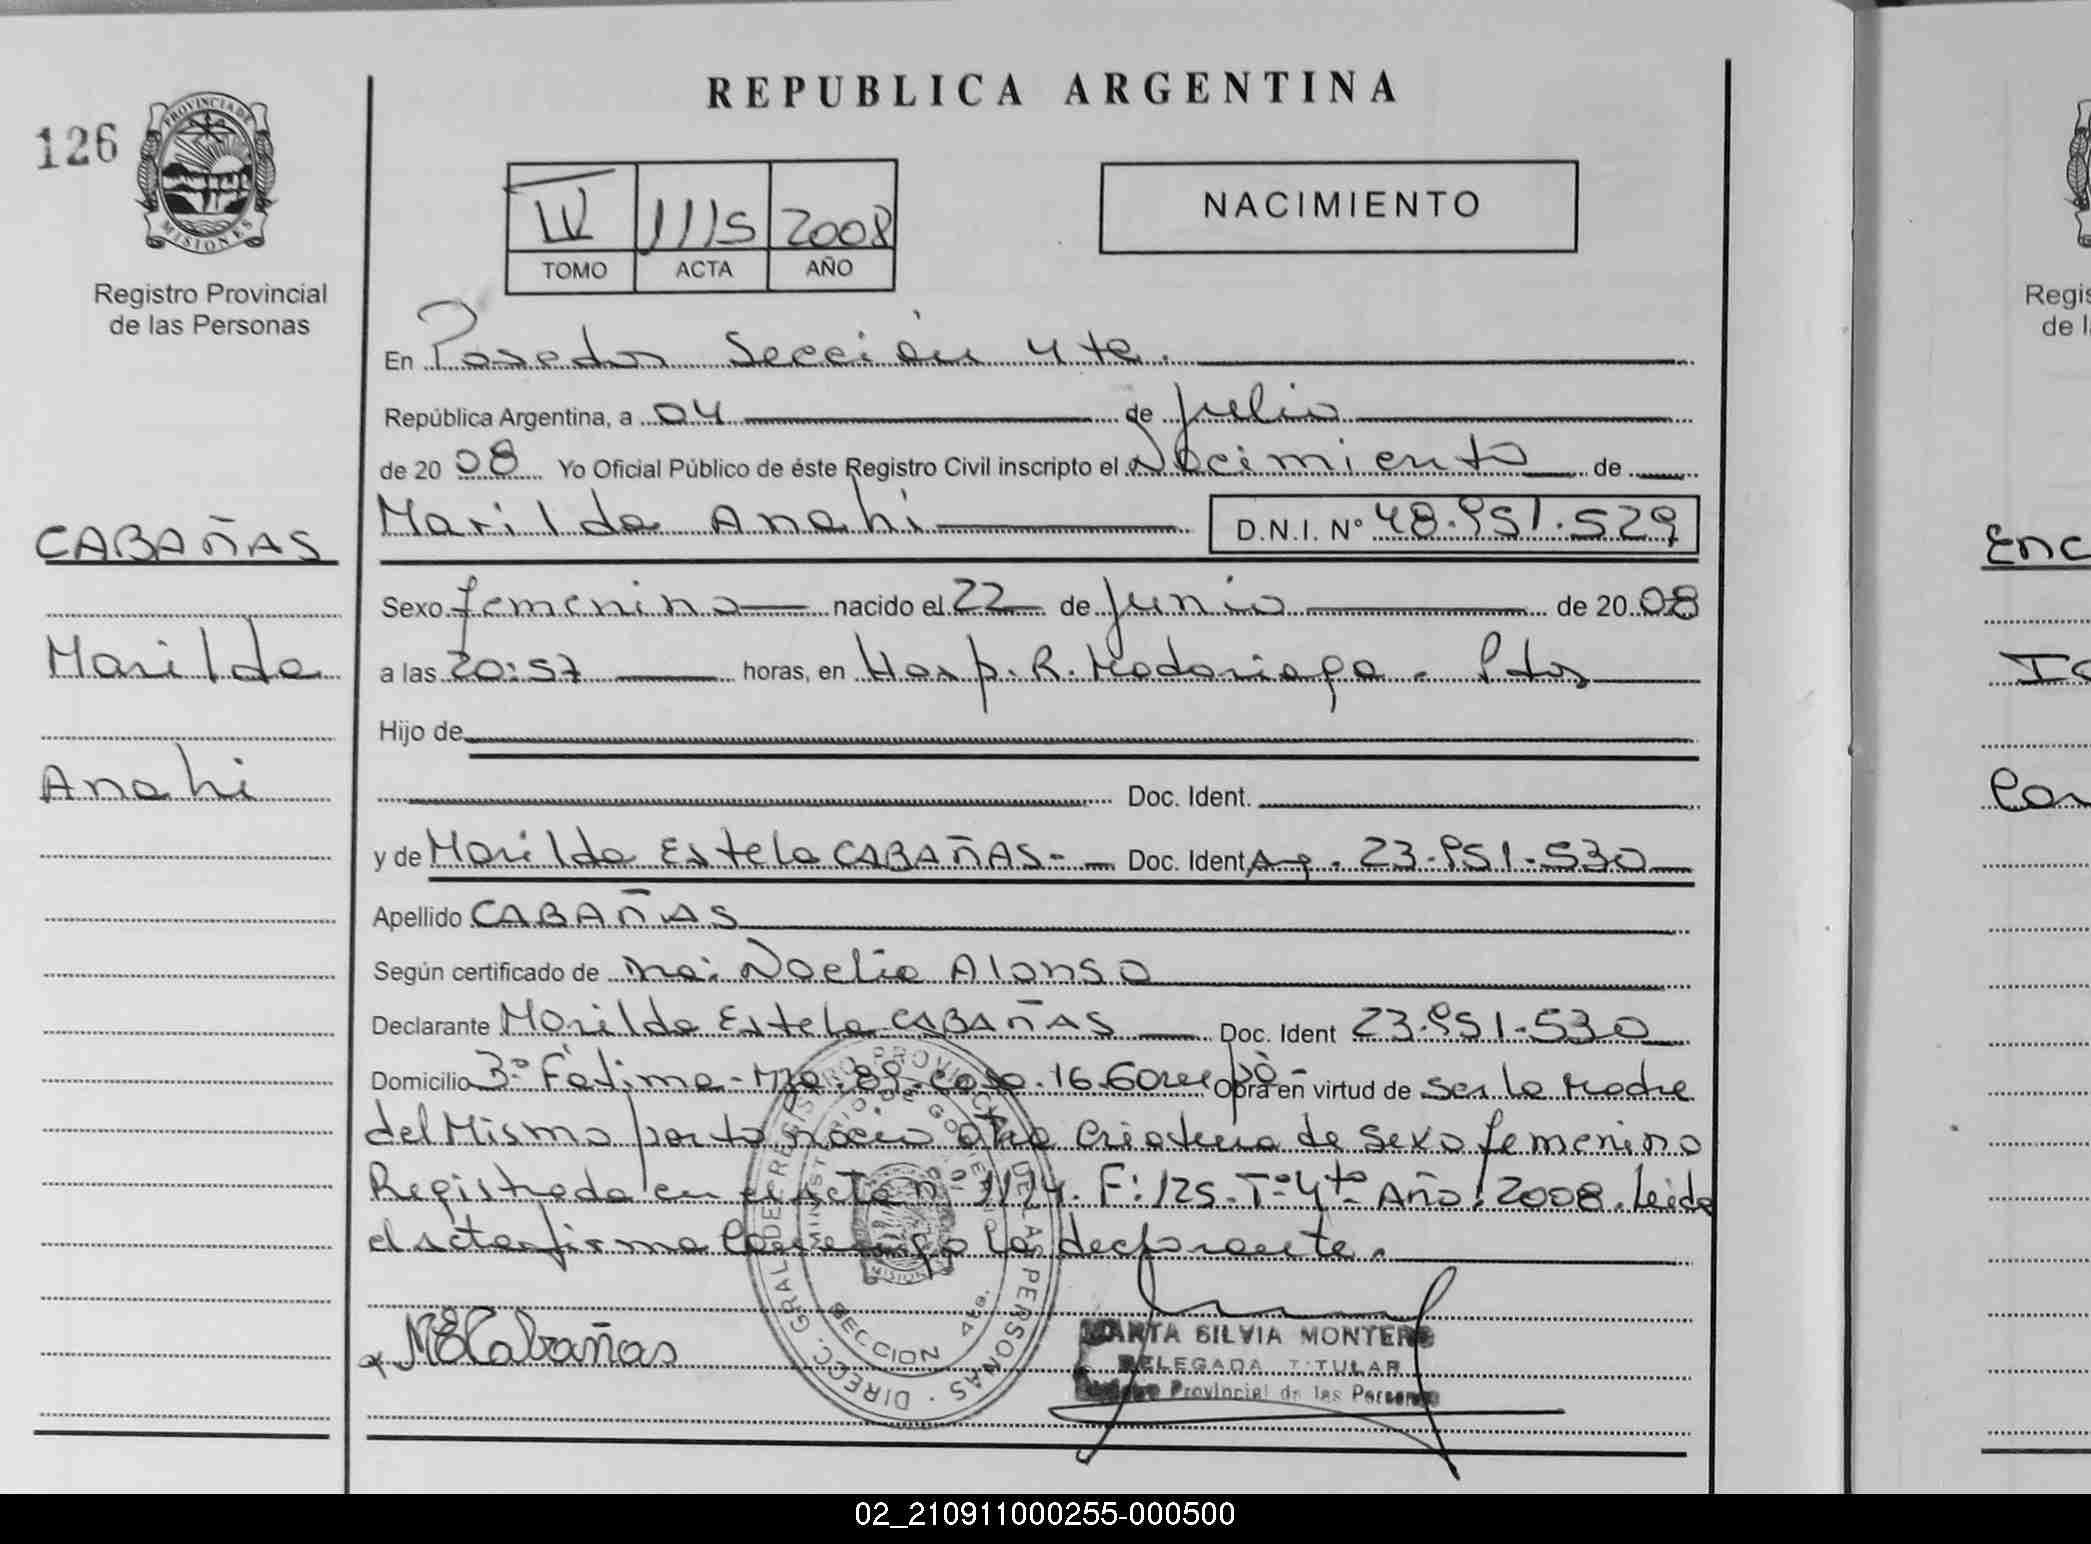 REPUBLICA ARGENTINA
126
PROVINCIA DE
MISIONES
Registro Provincial
de las Personas
IV 1115 2008
TOMO ACTA AÑO
NACIMIENTO
En Posadas Sección 4ta.
República Argentina, a 04 de julio
de 2008 Yo Oficial Público de éste Registro Civil inscripto el Nacimiento de
Marilda Anahi D.N.I. Nº 48.951.529
CABAÑAS
Marilda
Anahi
Sexo femenino nacido el 22 de junio de 2008
a las 20:57 horas, en Hosp. R. Madariaga. Pdas
Hijo de
Doc. Ident.
y de Marilda Estela CABAÑAS- Doc. Ident Ag. 23.951.530
Apellido CABAÑAS
Según certificado de Noelia Alonso
Declarante Marilda Estela CABAÑAS Doc. Ident 23.951.530
Domicilio 3º Fátima - Mza. 89. casa. 16. Garupá - Obra en virtud de ser la Madre
del Mismo parto nació otra Criatura de sexo femenino
Registrada en el Acta nº 1114. F: 125. Tº 4to Año: 2008. Leída
el acta firma Conmigo la declarante.
MECabañas
DIRECC. GRAL. DE REGISTRO PROVINCIAL DE LAS PERSONAS
MINISTERIO DE GOBIERNO
MISIONES
SECCION 4ta.
MARTA SILVIA MONTERO
DELEGADA TITULAR
Registro Provincial de las Personas
Regis
de l
ENC
Ia
Car
02_210911000255-000500